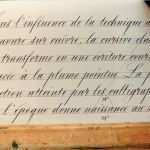 sous l'influence de la technique d
gravure sur cuivre, la cursive class
transforme en une écriture cour
tracée à la plume pointue. La p
ction atteinte par les calligraph
l'époque donne naissance au s